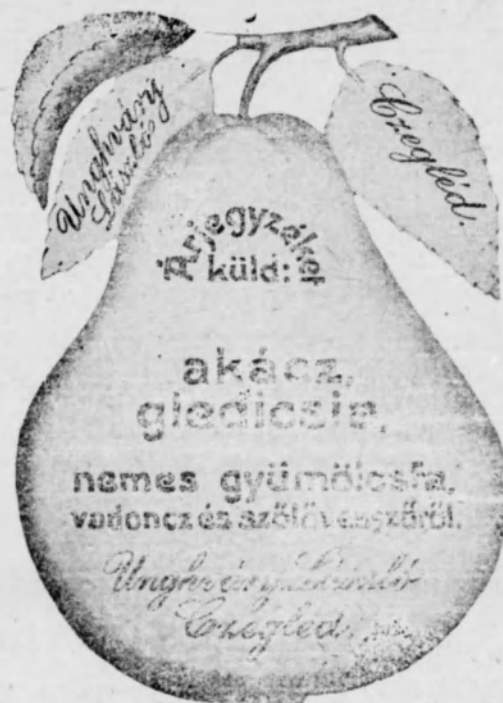 Unghváry
László
Czegléd.
Árjegyzéket
küld:
akácz,
gledicsia,
nemes gyümölcsfa,
vadoncz és szőlővesszőről.
Unghváry László
Czegléd.